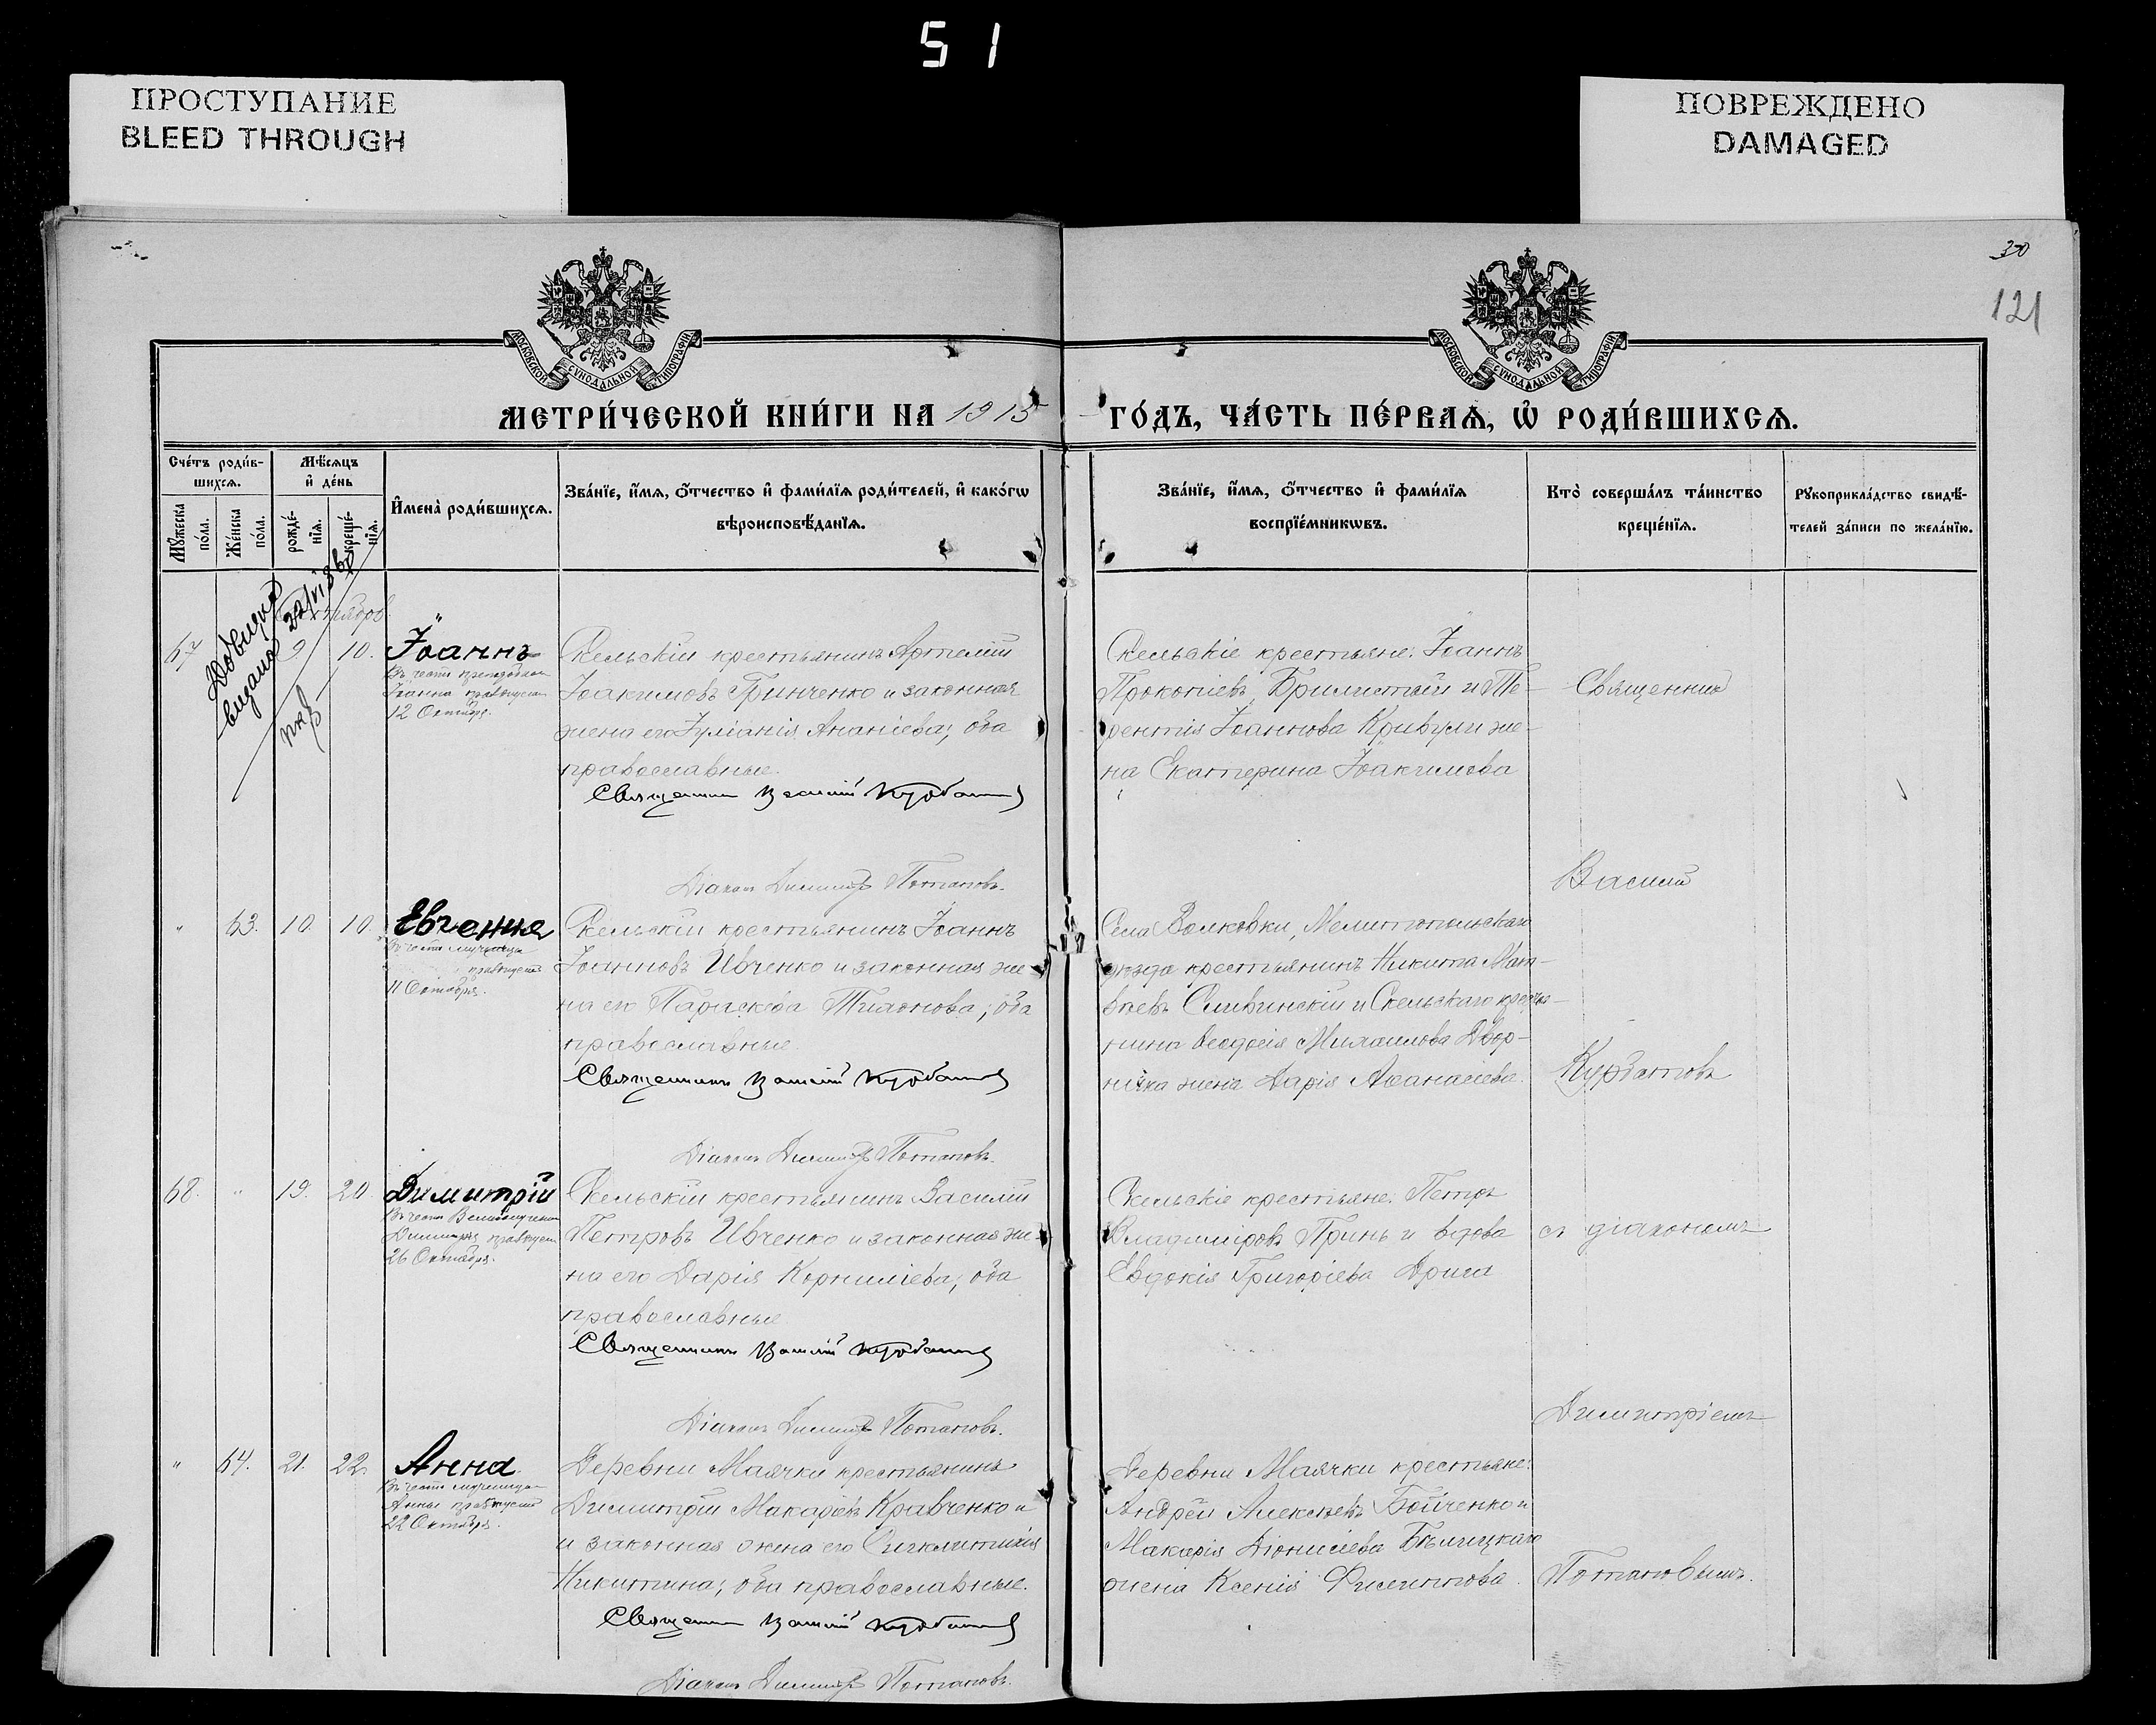 51
ПРОСТУПАНИЕ
BLEED THROUGH
ПОВРЕЖДЕНО
DAMAGED
30
121
МОСКОВСКОЙ СУНОДАЛЬНОЙ ТИПОГРАФІИ
МОСКОВСКОЙ СУНОДАЛЬНОЙ ТИПОГРАФІИ
МЕТРИ́ЧЕСКОЙ КНИ́ГИ НА 1915 ГО́ДЪ, ЧА́СТЬ ПЕ́РВАѦ, Ѡ҆ РОДИ́ВШИХСѦ.
Сче́тъ роди́в-
шихсѧ.
Мѣ́сѧцъ
и҆ де́нь
Мꙋ́жеска
по́ла.
Же́нска
по́ла.
рожде́-
нїѧ.
креще́-
нїѧ.
И҆мена̀ роди́вшихсѧ.
Зва́нїе, и҆́мѧ, ѻ҆́тчество и҆ фами́лїѧ роди́телей, и҆ како́гѡ
вѣроисповѣ́данїѧ.
Зва́нїе, и҆́мѧ, ѻ҆́тчество и҆ фами́лїѧ
воспрїе́мникѡвъ.
Кто̀ соверша́лъ та́инство
креще́нїѧ.
Рꙋкоприкла́дство свидѣ́-
телей за́писи по жела́нїю.
Довидка
видана
67 9. 10. Іоаннъ
Въ честь преподобнаго
Іоанна празднуем.
12 Октября.
Скельскій крестьянинъ Артемій
Іоакимовъ Гринченко и законная
жена его Іуліанія Ананіева; оба
православные.
Священникъ Василій Курбатовъ
Діаконъ Димитрій Потаповъ.
Скельскіе крестьяне: Іоаннъ
Прокопіевъ и Те-
рентія Іоаннова Кривули же-
на Екатерина Іоакимова
Священникъ
Василій
" 63. 10. 10. Евгенія
Въ честь мученицы
празднуем.
11 Октября.
Скельскій крестьянинъ Іоаннъ
Іоанновъ Ивченко и законная же-
на его Параскева Тихонова; оба
православные.
Священникъ Василій Курбатовъ
Діаконъ Димитрій Потаповъ.
Села Волковки, Мелитопольскаго
уѣзда крестьянинъ Никита Мат-
вѣевъ Сливинскій и Скельскаго крестья-
нина Ѳеодосія Михаилова Двор-
ничка жена Дарія Аѳанасіева.
Курбатовъ
68. " 19. 20. Димитрій
Въ честь Великомученика
Димитрія празднуем.
26 Октября.
Скельскій крестьянинъ Василій
Петровъ Ивченко и законная же-
на его Дарія Корниліева; оба
православные
Священникъ Василій Курбатовъ
Діаконъ Димитрій Потаповъ.
Скельскіе крестьяне: Петръ
Владиміровъ Принь и вдова
Евдокія Григоріева Дрига
съ діакономъ
Димитріемъ
" 64. 21. 22. Анна
Въ честь мученицы
Анны празднуем.
22 Октября.
Деревни Маячки крестьянинъ
Димитрій Макаріевъ Кравченко и
и законная жена его Сигклитикія
Никитина; оба православные.
Священникъ Василій Курбатовъ
Діаконъ Димитрій Потаповъ.
Деревни Маячки крестьяне:
Андрей Алексѣевъ Бойченко и
Макарія Діонисіева Бѣлицкаго
жена Ксенія Филиппова.
Потаповымъ.